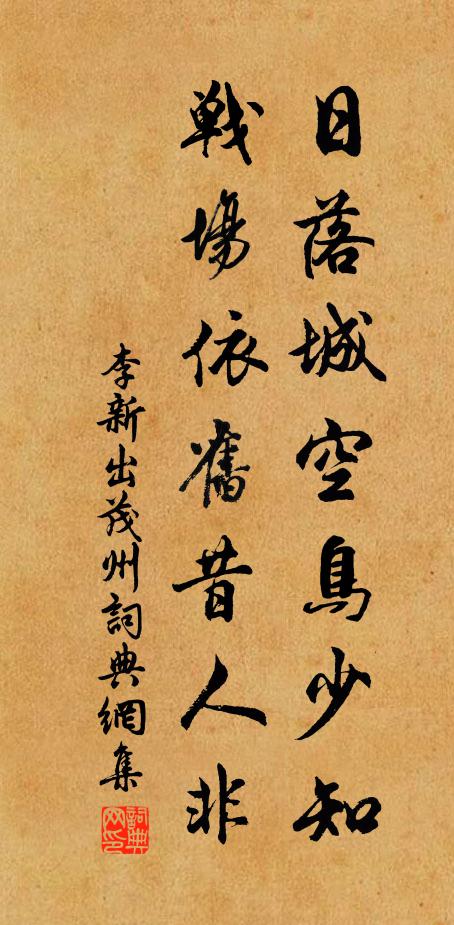 日落城空鳥少知
戰場依舊昔人非
李新出茂州詞典網集
詞典網印